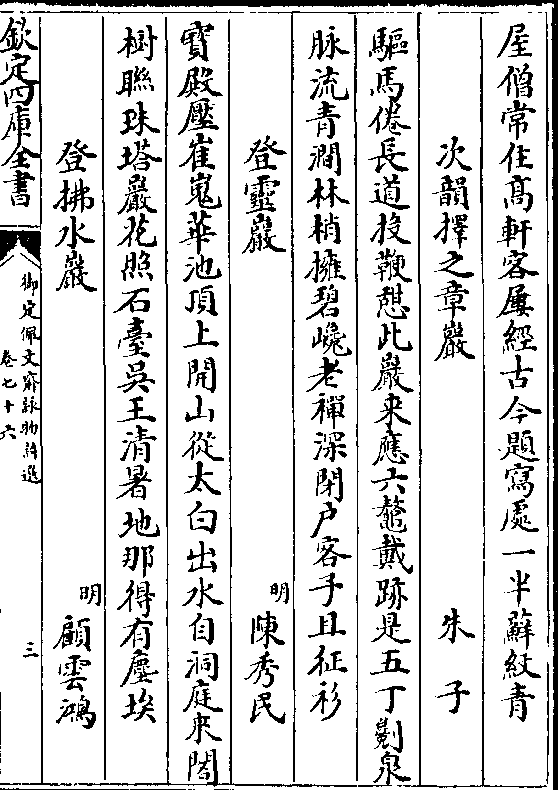 屋僧常住高軒客屢經古今題寫處一半蘚紋青
次韻擇之章巖 朱子
驅馬倦長道投鞭憇此巖来應六鰲戴跡是五丁劖泉
脉流青澗林梢擁碧巉老禪深閉户客子且征衫
登靈巖 明 陳秀民
寳殿壓崔嵬華池頂上開山從太白出水自洞庭来閣
樹聯珠塔巖花照石臺吳王清暑地那得有塵埃
登拂水巖 明 顧雲鴻
欽定四庫全書
御定佩文齋詠物詩選
卷七十六
三